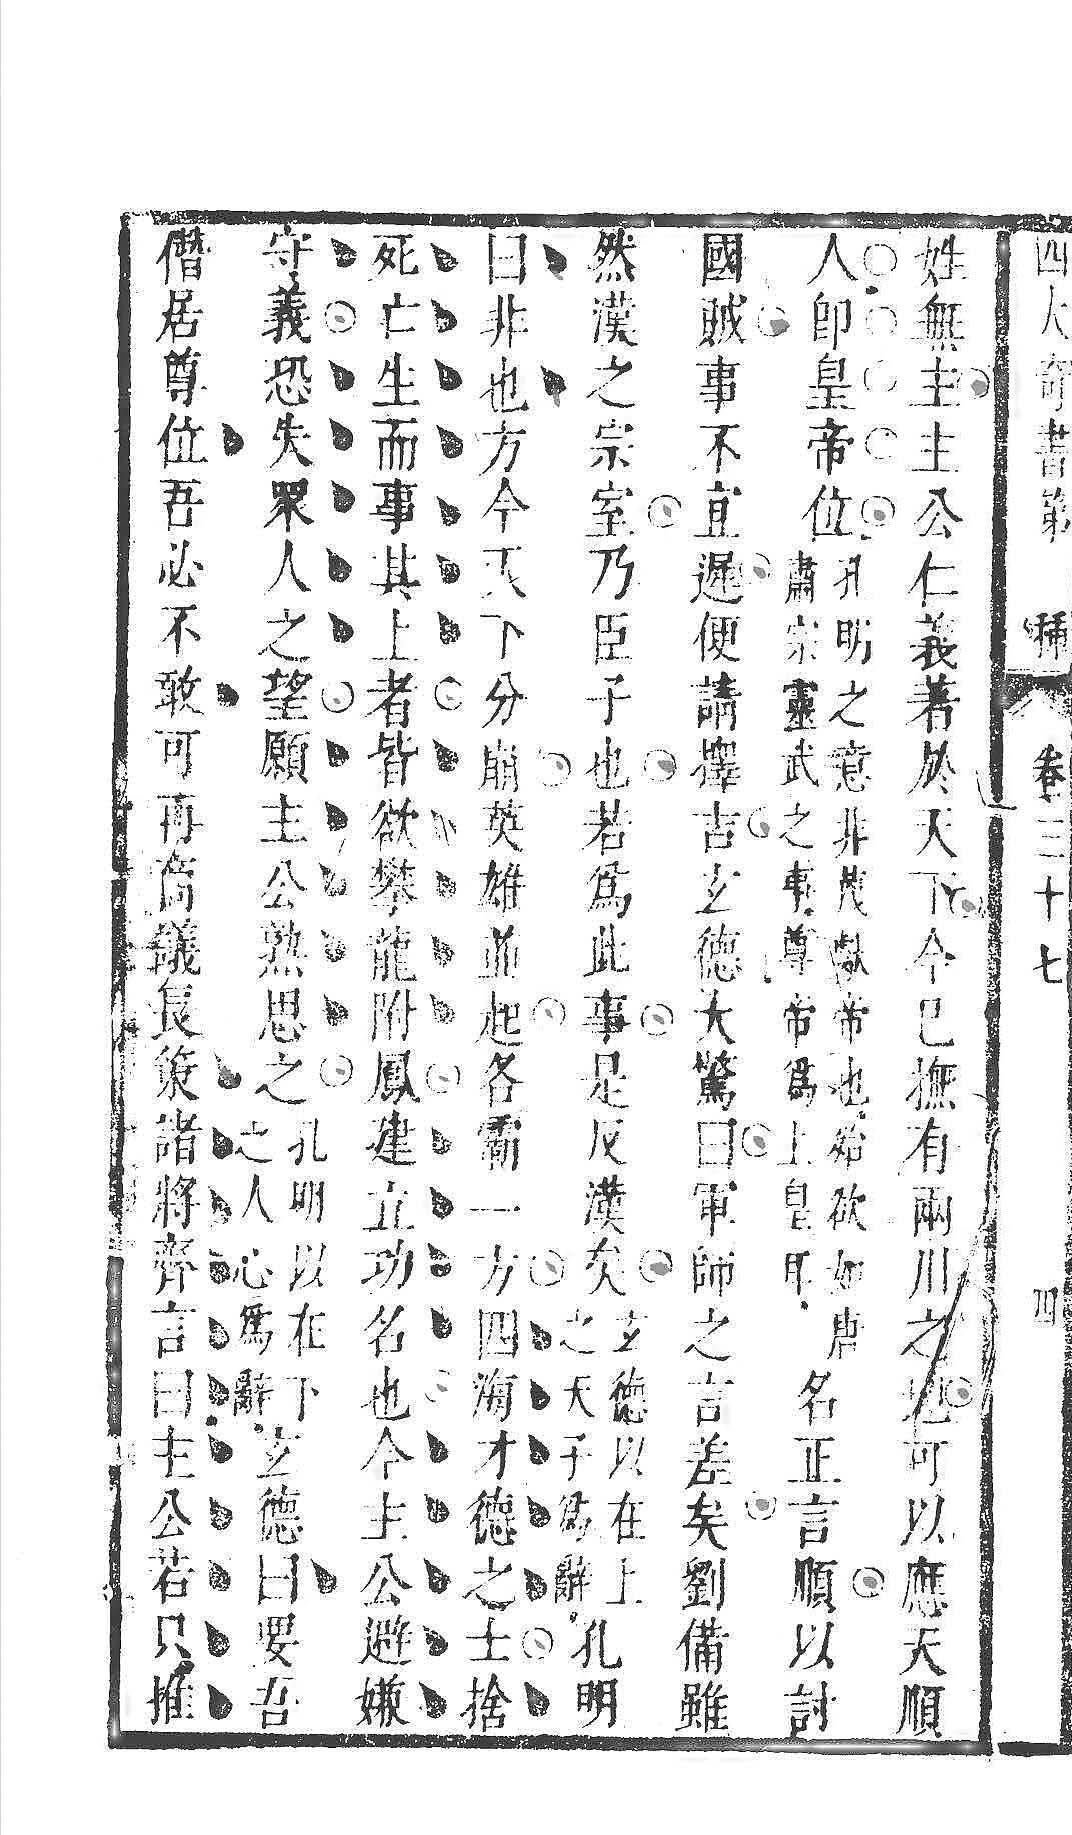 四大奇書第一種 卷三十七 四
姓無主主公仁義著於天下今已撫有兩川之地可以應天順
人卽皇帝位孔明之意非茂獻帝也殆欲如唐肅宗靈武之事尊帝爲上皇耳名正言順以討
國賊事不宜遲便請擇吉玄德大驚曰軍師之言差矣劉備雖
然漢之宗室乃臣子也若爲此事是反漢矣玄德以在上之天子爲辭孔明
曰非也方今天下分崩英雄並起各霸一方四海才德之士捨
死亡生而事其上者皆欲攀龍附鳳建立功名也今主公避嫌
守義恐失眾人之望願主公熟思之孔明以在下之人心爲辭玄德曰要吾
僭居尊位吾必不敢可再商議長策諸將齊言曰主公若只推